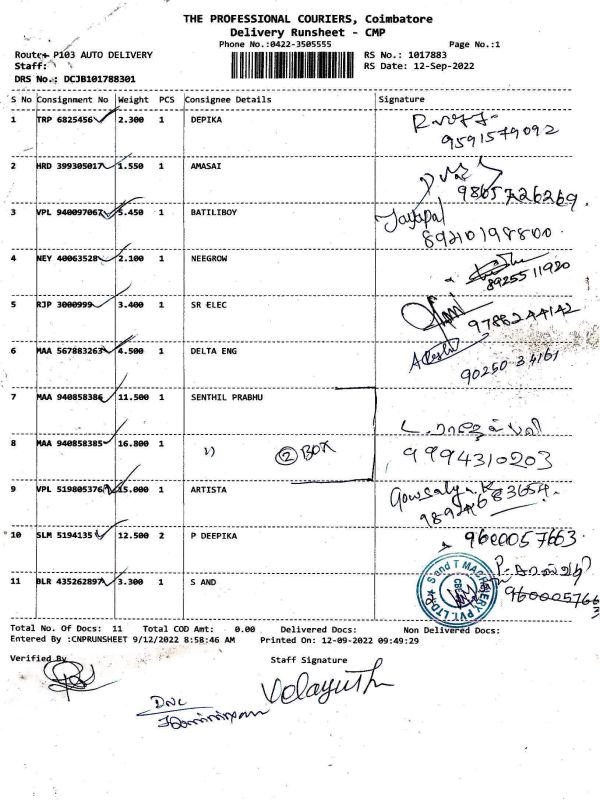 THE PROFESSIONAL COURIERS, Coimbatore
Delivery Runsheet - CMP
Phone No.:0422-3505555
Page No.:1
Route: P103 AUTO DELIVERY
RS No.: 1017883
Staff:
RS Date: 12-Sep-2022
DRS No.: DCJB101788301
S No Consignment No Weight PCS Consignee Details Signature
1 TRP 6825456 2.300 1 DEPIKA
9591579092
2 HRD 399305017 1.550 1 AMASAI
9865726269.
3 VPL 940097067 5.450 1 BATILIBOY Jayapal
4 NEY 40063528 2.100 1 NEEGROW
89255 11920
5 RJP 3000999 3.400 1 SR ELEC
9788244142
6 MAA 567883263 4.500 1 DELTA ENG
90250 34161
7 MAA 940858386 11.500 1 SENTHIL PRABHU
8 MAA 940858385 16.800 1 ② BOX 9994310203
9 VPL 519805376 15.000 1 ARTISTA
10 SLM 5194135 12.500 2 P DEEPIKA 9600057663
11 BLR 435262897 3.300 1 S AND
Total No. Of Docs: 11 Total COD Amt: 0.00 Delivered Docs: Non Delivered Docs:
Entered By :CNPRUNSHEET 9/12/2022 8:58:46 AM Printed On: 12-09-2022 09:49:29
Verified By Staff Signature
Velayuth